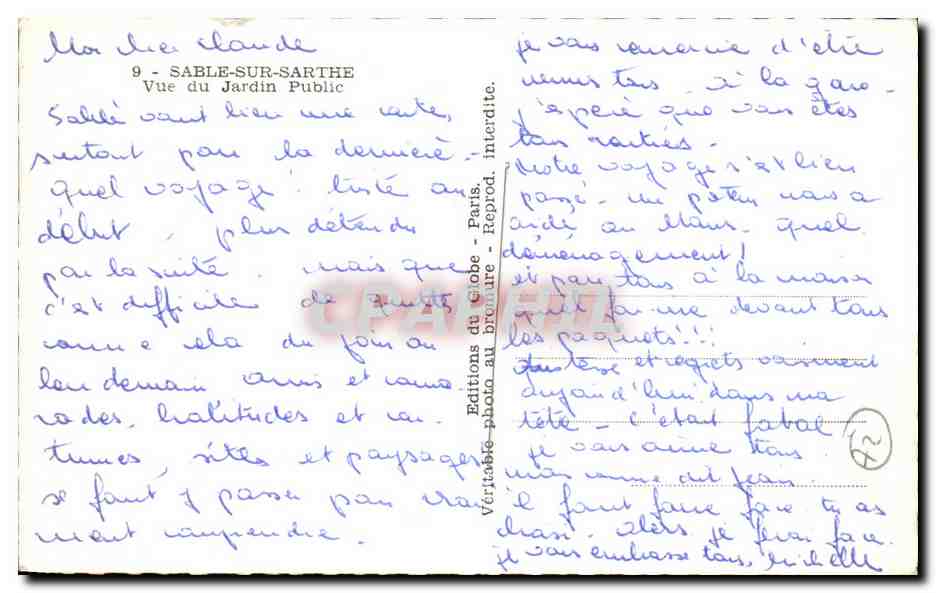 Mon cher Claude
9 - SABLE-SUR-SARTHE
Vue du Jardin Public
Sablé vaut bien une carte,
surtout pour la dernière -
quel voyage! triste au
début, plus détendu
par la suite. mais que
c'est difficile de quitter
comme cela du jour au
lendemain amis et cama-
rades, habitudes et cou-
tumes, sites et paysages
se faut y passer pour vrai
ment comprendre.
Editions du Globe - Paris.
Véritable photo au bromure - Reprod. interdite.
CPAPHIL
je vous remercie d'être
venus tous à la gare -
j'espère que vous êtes
tous rentrés.
Notre voyage s'est bien
passé - un potou nous a
aidé au Mans. quel
déménagement!
et par tous à la maison
quel devant tous
les paquets!!!
Tristesse et regrets vraiment
aujourd'hui dans ma
tête - c'était fatal
je vous aime tous.
mais comme dit Jean
il faut faire face. tu as
choisi. alors je ferai face.
je vous embrasse tous, Michelle
72